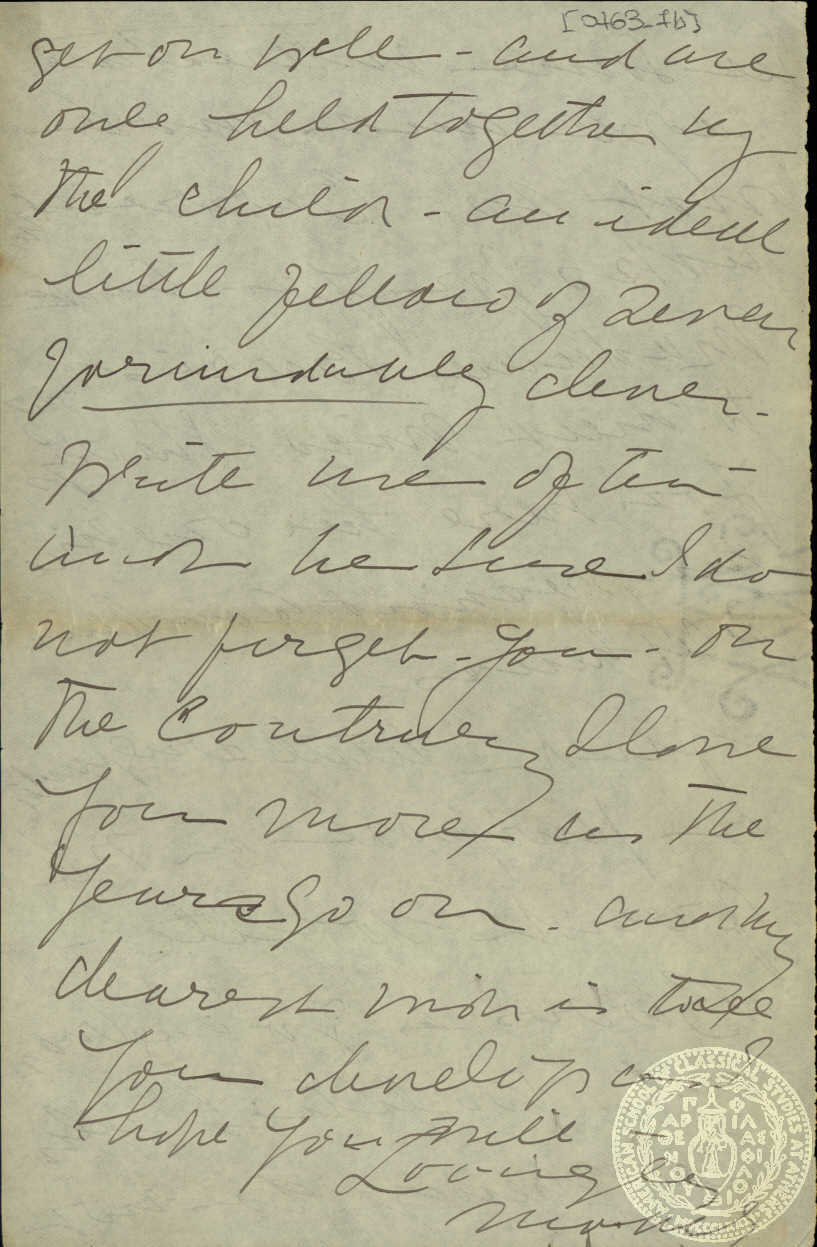 [0463_1b]
get on well - and are
only held together by
the child - an ideal
little fellow of seven
formidably clever.
Write me often
and be sure I do
not forget you - on
the contrary I love
you more as the
years go on. and my
dearest wish is to see
you develop as I
hope you will -
Lovingly
AMERICAN SCHOOL OF CLASSICAL STUDIES AT ATHENS